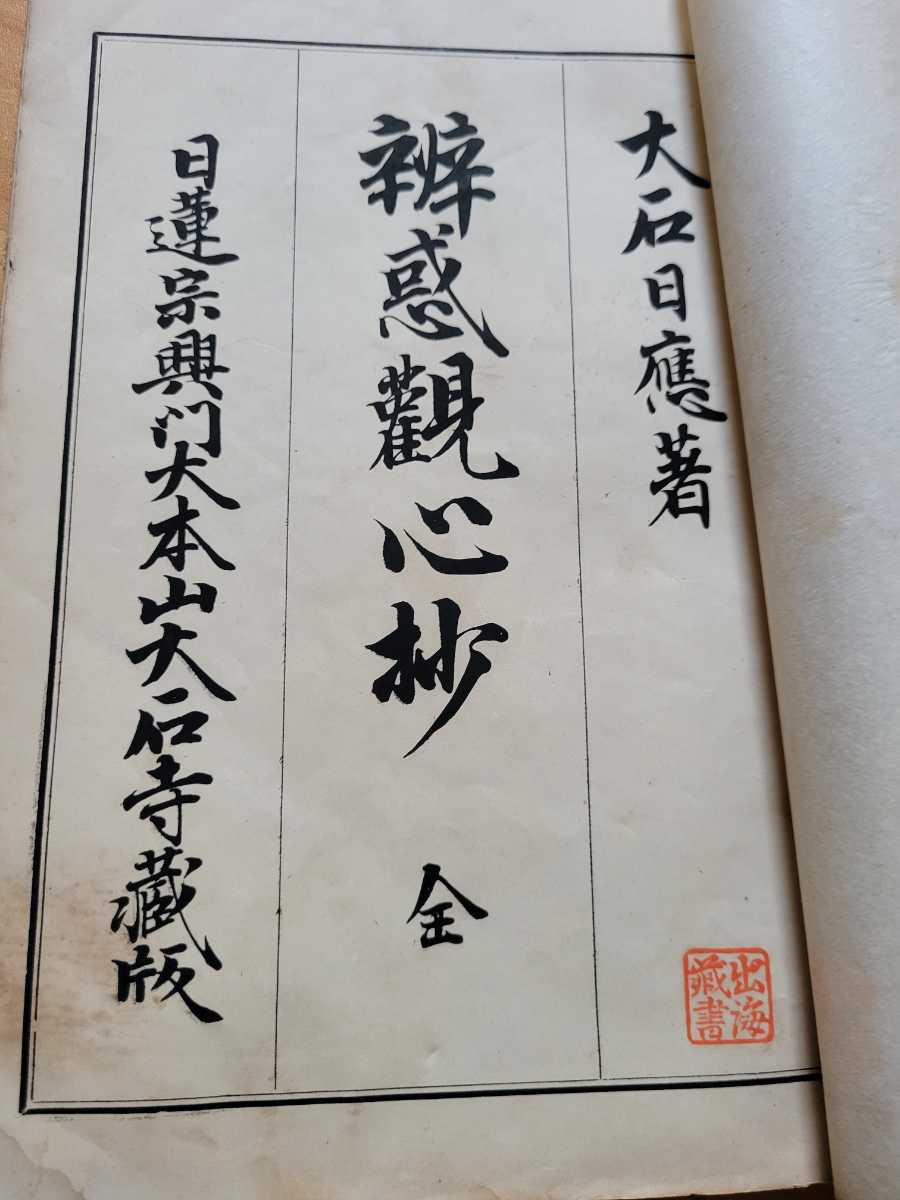 大石日應著
辨惑觀心抄 全
日蓮宗興门大本山大石寺藏版
出海
藏書